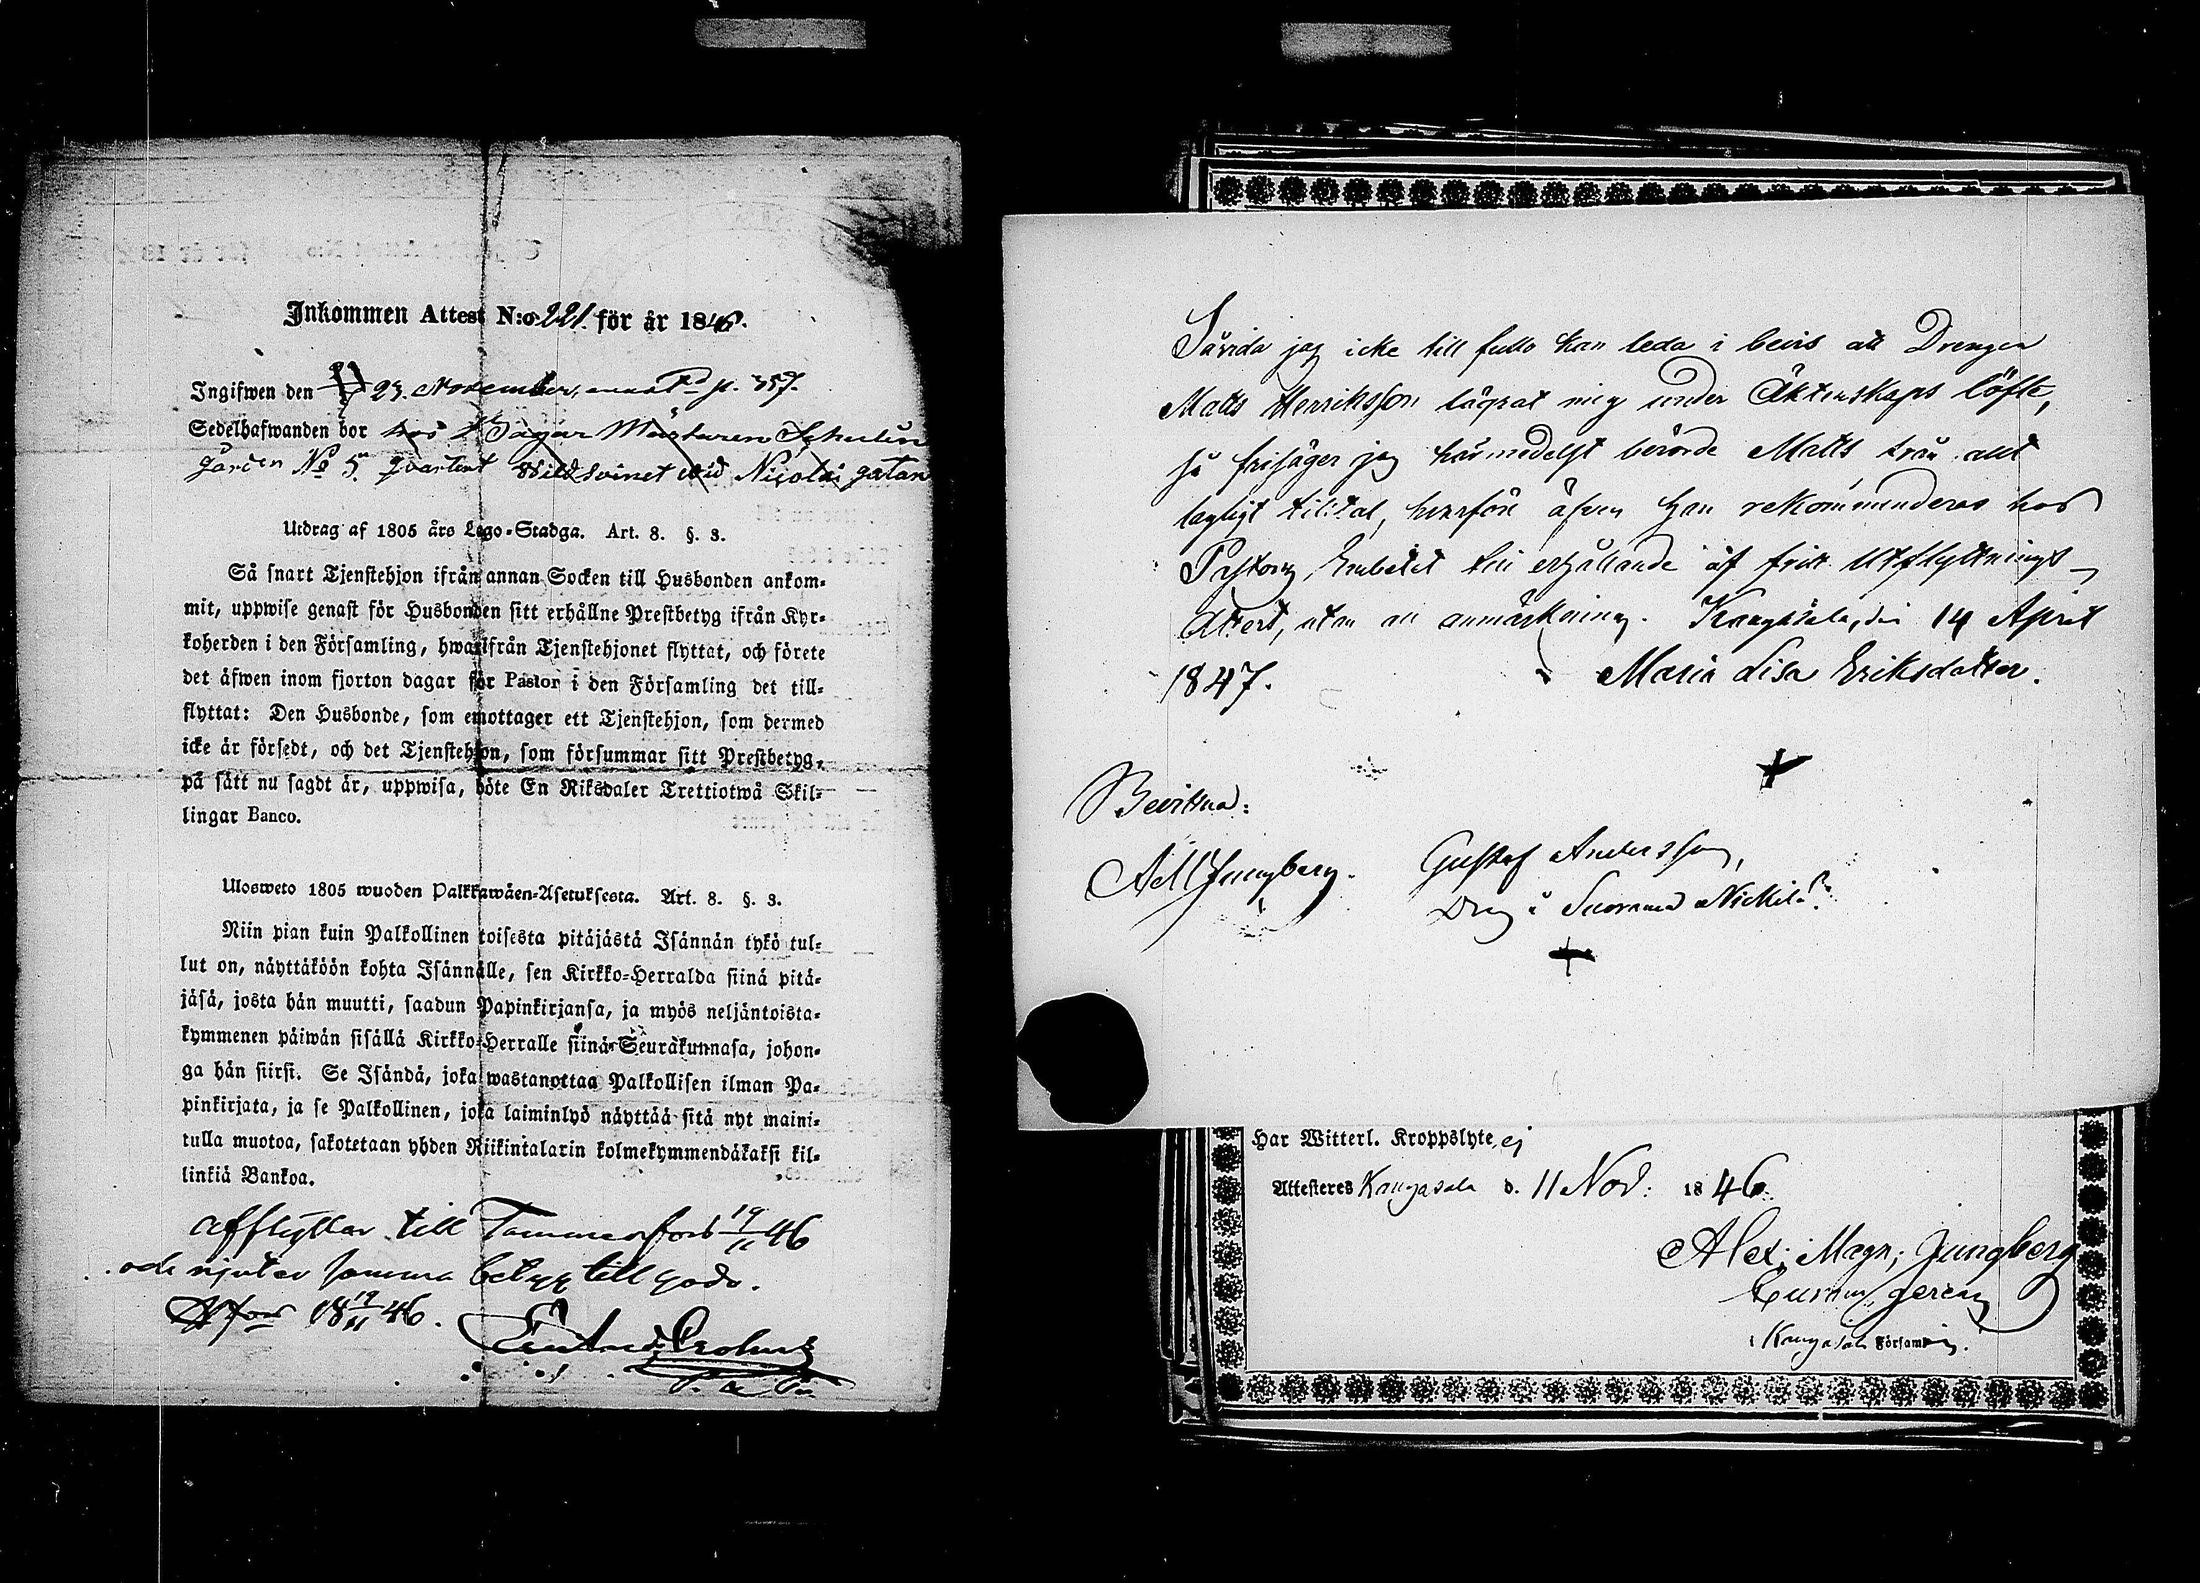 Inkommen Attest N:o 221. för år 1846.
Ingifwen den 23. November, p. 357.
Sedelhafwanden bor hos
gården No 5. qvarteret Wildsvinet wid Nicolai gatan
Utdrag af 1805 års Lego-Stadga. Art. 8. §. 3.
Så snart Tjenstehjon ifrån annan Socken till Husbonden ankom-
mit, uppwise genast för Husbonden sitt erhållne Prestbetyg ifrån Kyr-
koherden i den Församling, hwarifrån Tjenstehjonet flyttat, och förete
det äfwen inom fjorton dagar för Pastor i den Församling det till-
flyttat: Den Husbonde, som emottager ett Tjenstehjon, som dermed
icke är försedt, och det Tjenstehjon, som försummar sitt Prestbetyg,
på sätt nu sagdt är, uppwisa, böte En Riksdaler Trettiotwå Skil-
lingar Banco.
Ulosweto 1805 wuoden Palkkawäen-Asetuksesta. Art. 8. §. 3.
Niin pian kuin Palkollinen toisesta pitäjästä Isännän tykö tul-
lut on, näyttäköön kohta Isännälle, sen Kirkko-Herralda siinä pitä-
jäsä, josta hän muutti, saadun Papinkirjansa, ja myös neljäntoista-
kymmenen päiwän sisällä Kirkko-Herralle siinä Seurakunnasa, johon-
ga hän siirsi. Se Isändä, joka wastanottaa Palkollisen ilman Pa-
pinkirjata, ja se Palkollinen, joka laiminlyö näyttää sitä nyt maini-
tulla muotoa, sakotetaan yhden Riikintalarin kolmekymmendäkaksi kil-
linkiä Bankoa.
afflyttar till Tammerfors 19/11 46
och njuter samma betyg till godo.
18 19/11 46.
Såvida jag icke till fullo kan leda i bevis att Drengen
Matts Henriksson lägrat mig under Äktenskaps löfte,
så frisäger jag härmedelst berörde Matts från allt
lagligt tilltal, hvarföre äfven han rekommenderas hos
Pastors Embetet till erhållande af fritt Utflyttnings-
Attest, utan all anmärkning. Kangasala, den 14 April
1847. Maria Lisa Eriksdotter.
Bevittna:
AMJungberg. Gustaf Andersson,
Dreng i Suorama
Har Witterl. Kroppslyte, ej
Attesteres Kangasala d. 11 Nov: 1846.
Alex: Magn: Jungberg
i Kangasala Församling.